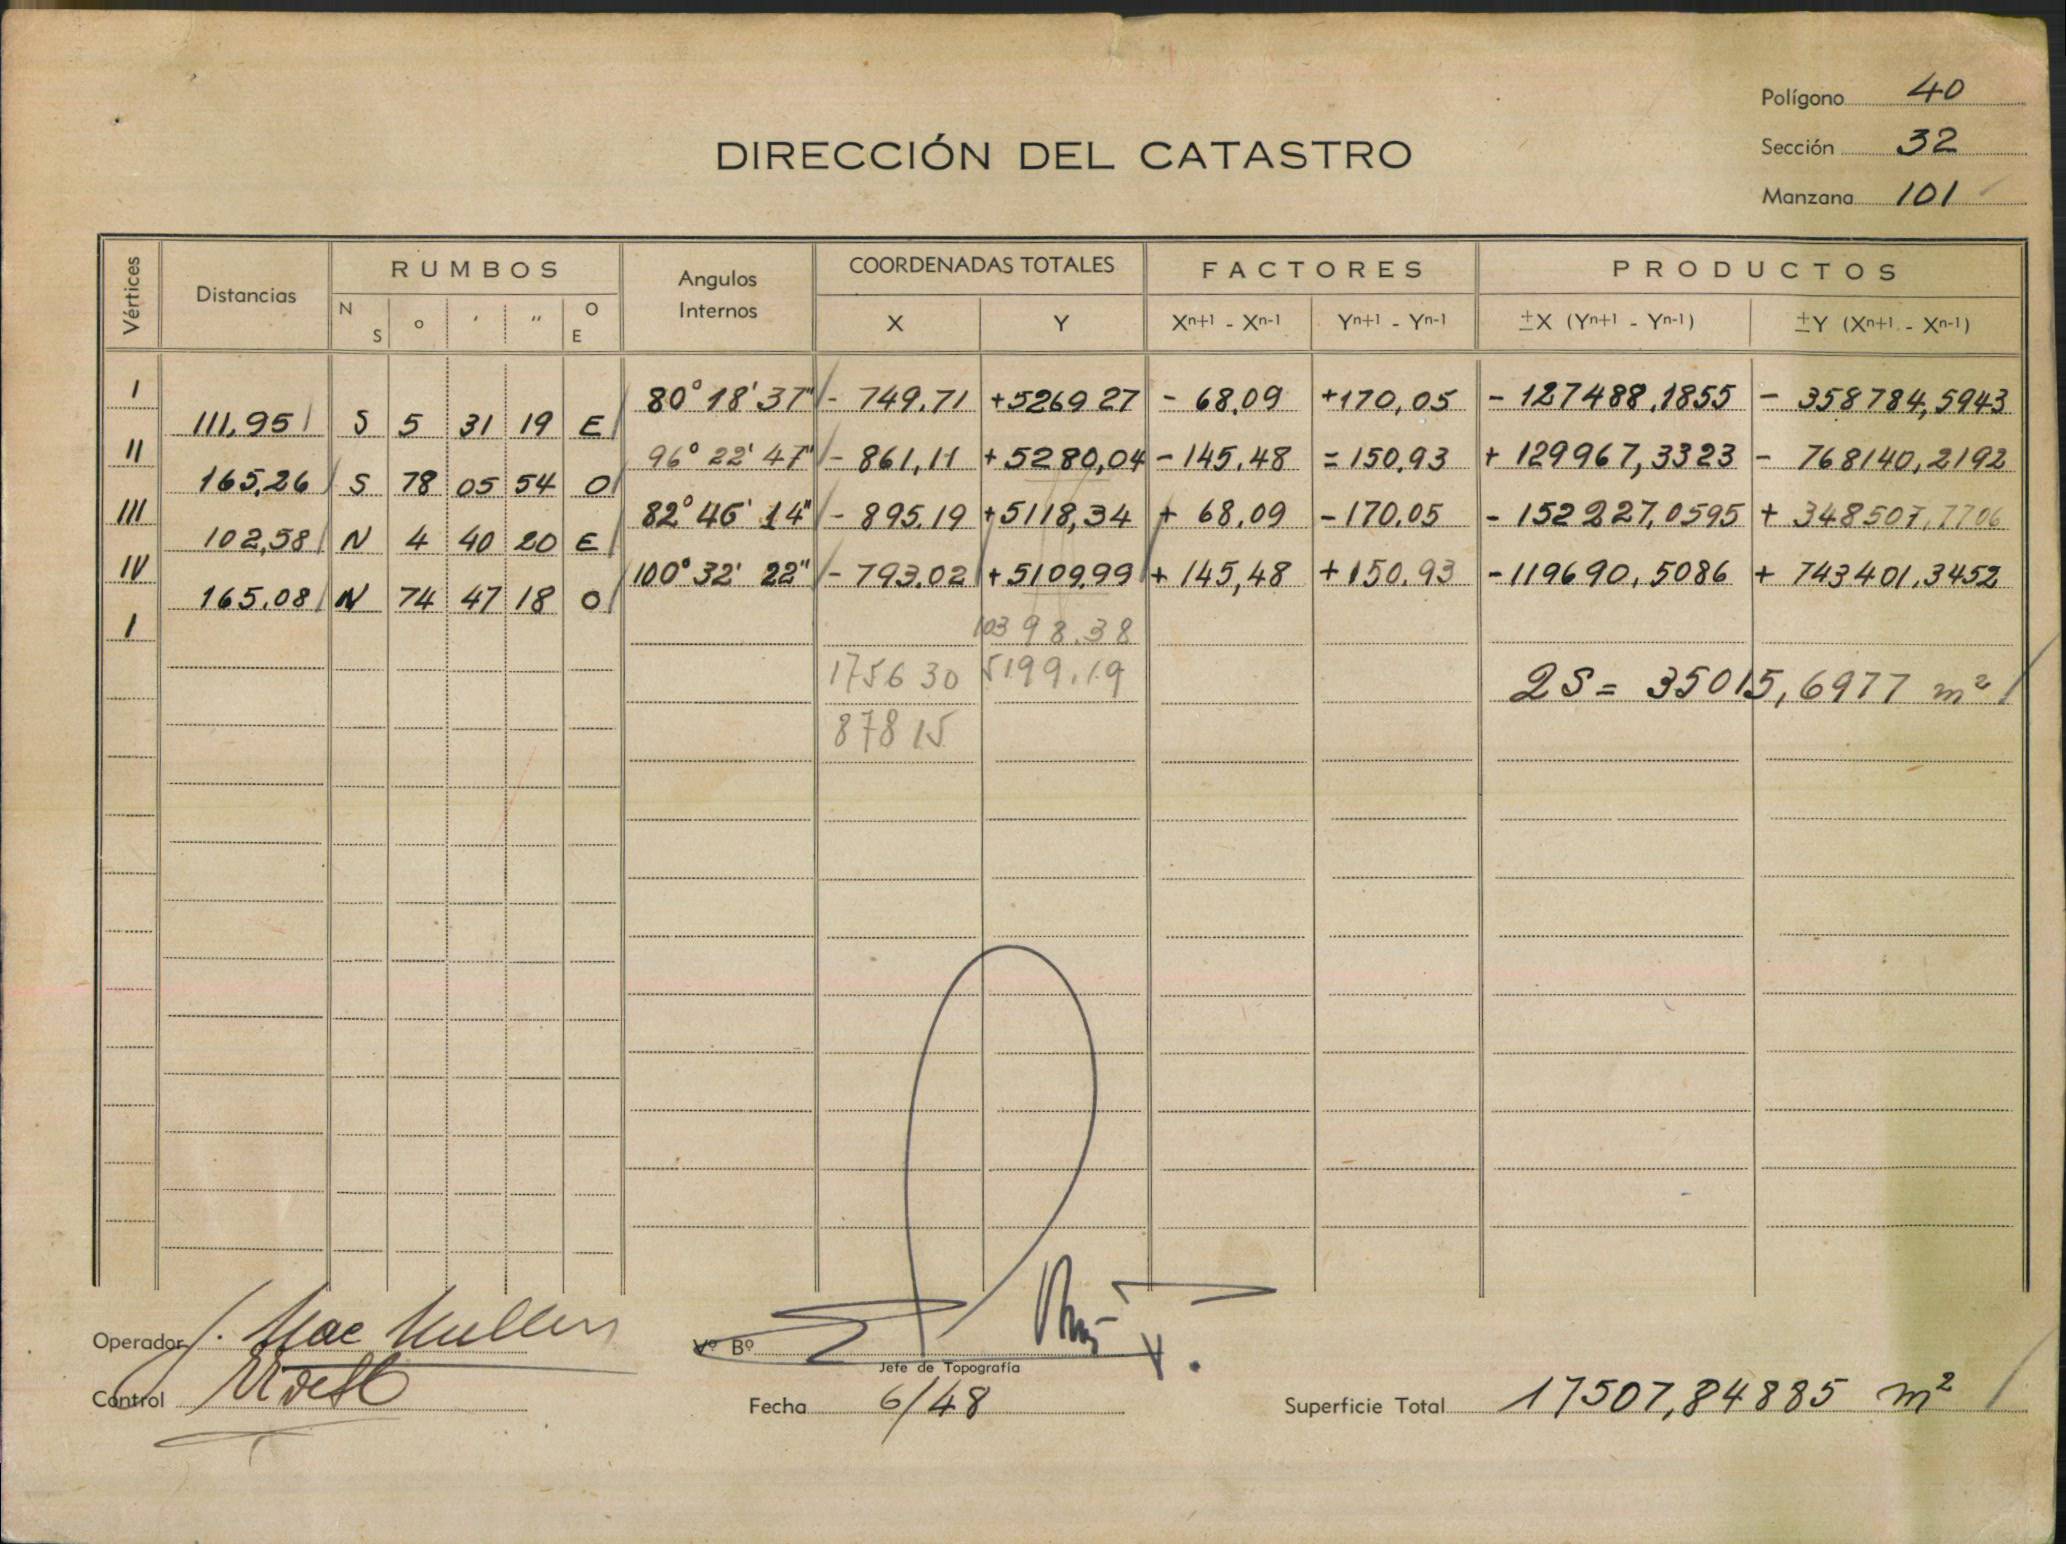 Polígono 40
Sección 32
Manzana 101
DIRECCIÓN DEL CATASTRO
Vértices Distancias RUMBOS Angulos Internos COORDENADAS TOTALES FACTORES PRODUCTOS
N S o ' '' O E X Y Xn+1 - Xn-1 Yn+1 - Yn-1 ±X (Yn+1 - Yn-1) ±Y (Xn+1 - Xn-1)
I 80° 18' 37" - 749,71 +5269 27 - 68,09 +170,05 - 127488,1855 - 358784,5943
111,95 S 5 31 19 E
II 96° 22' 47" - 861,11 +5280,04 - 145,48 = 150,93 + 129967,3323 - 768140,2192
165,26 S 78 05 54 O
III 82° 46' 14" - 895,19 +5118,34 + 68,09 - 170,05 - 152227,0595 + 348507,7706
102,58 N 4 40 20 E
IV 100° 32' 22" - 793,02 +5109,99 + 145,48 + 150,93 - 119690,5086 + 743401,3452
165,08 N 74 47 18 O
I 10398.38
175630 5199.19
2S = 35015,6977 m²
87815
Operador J. Mac Mullen
Vº Bº
Jefe de Topografía
Control
Fecha 6/48
Superficie Total 17507,84885 m²